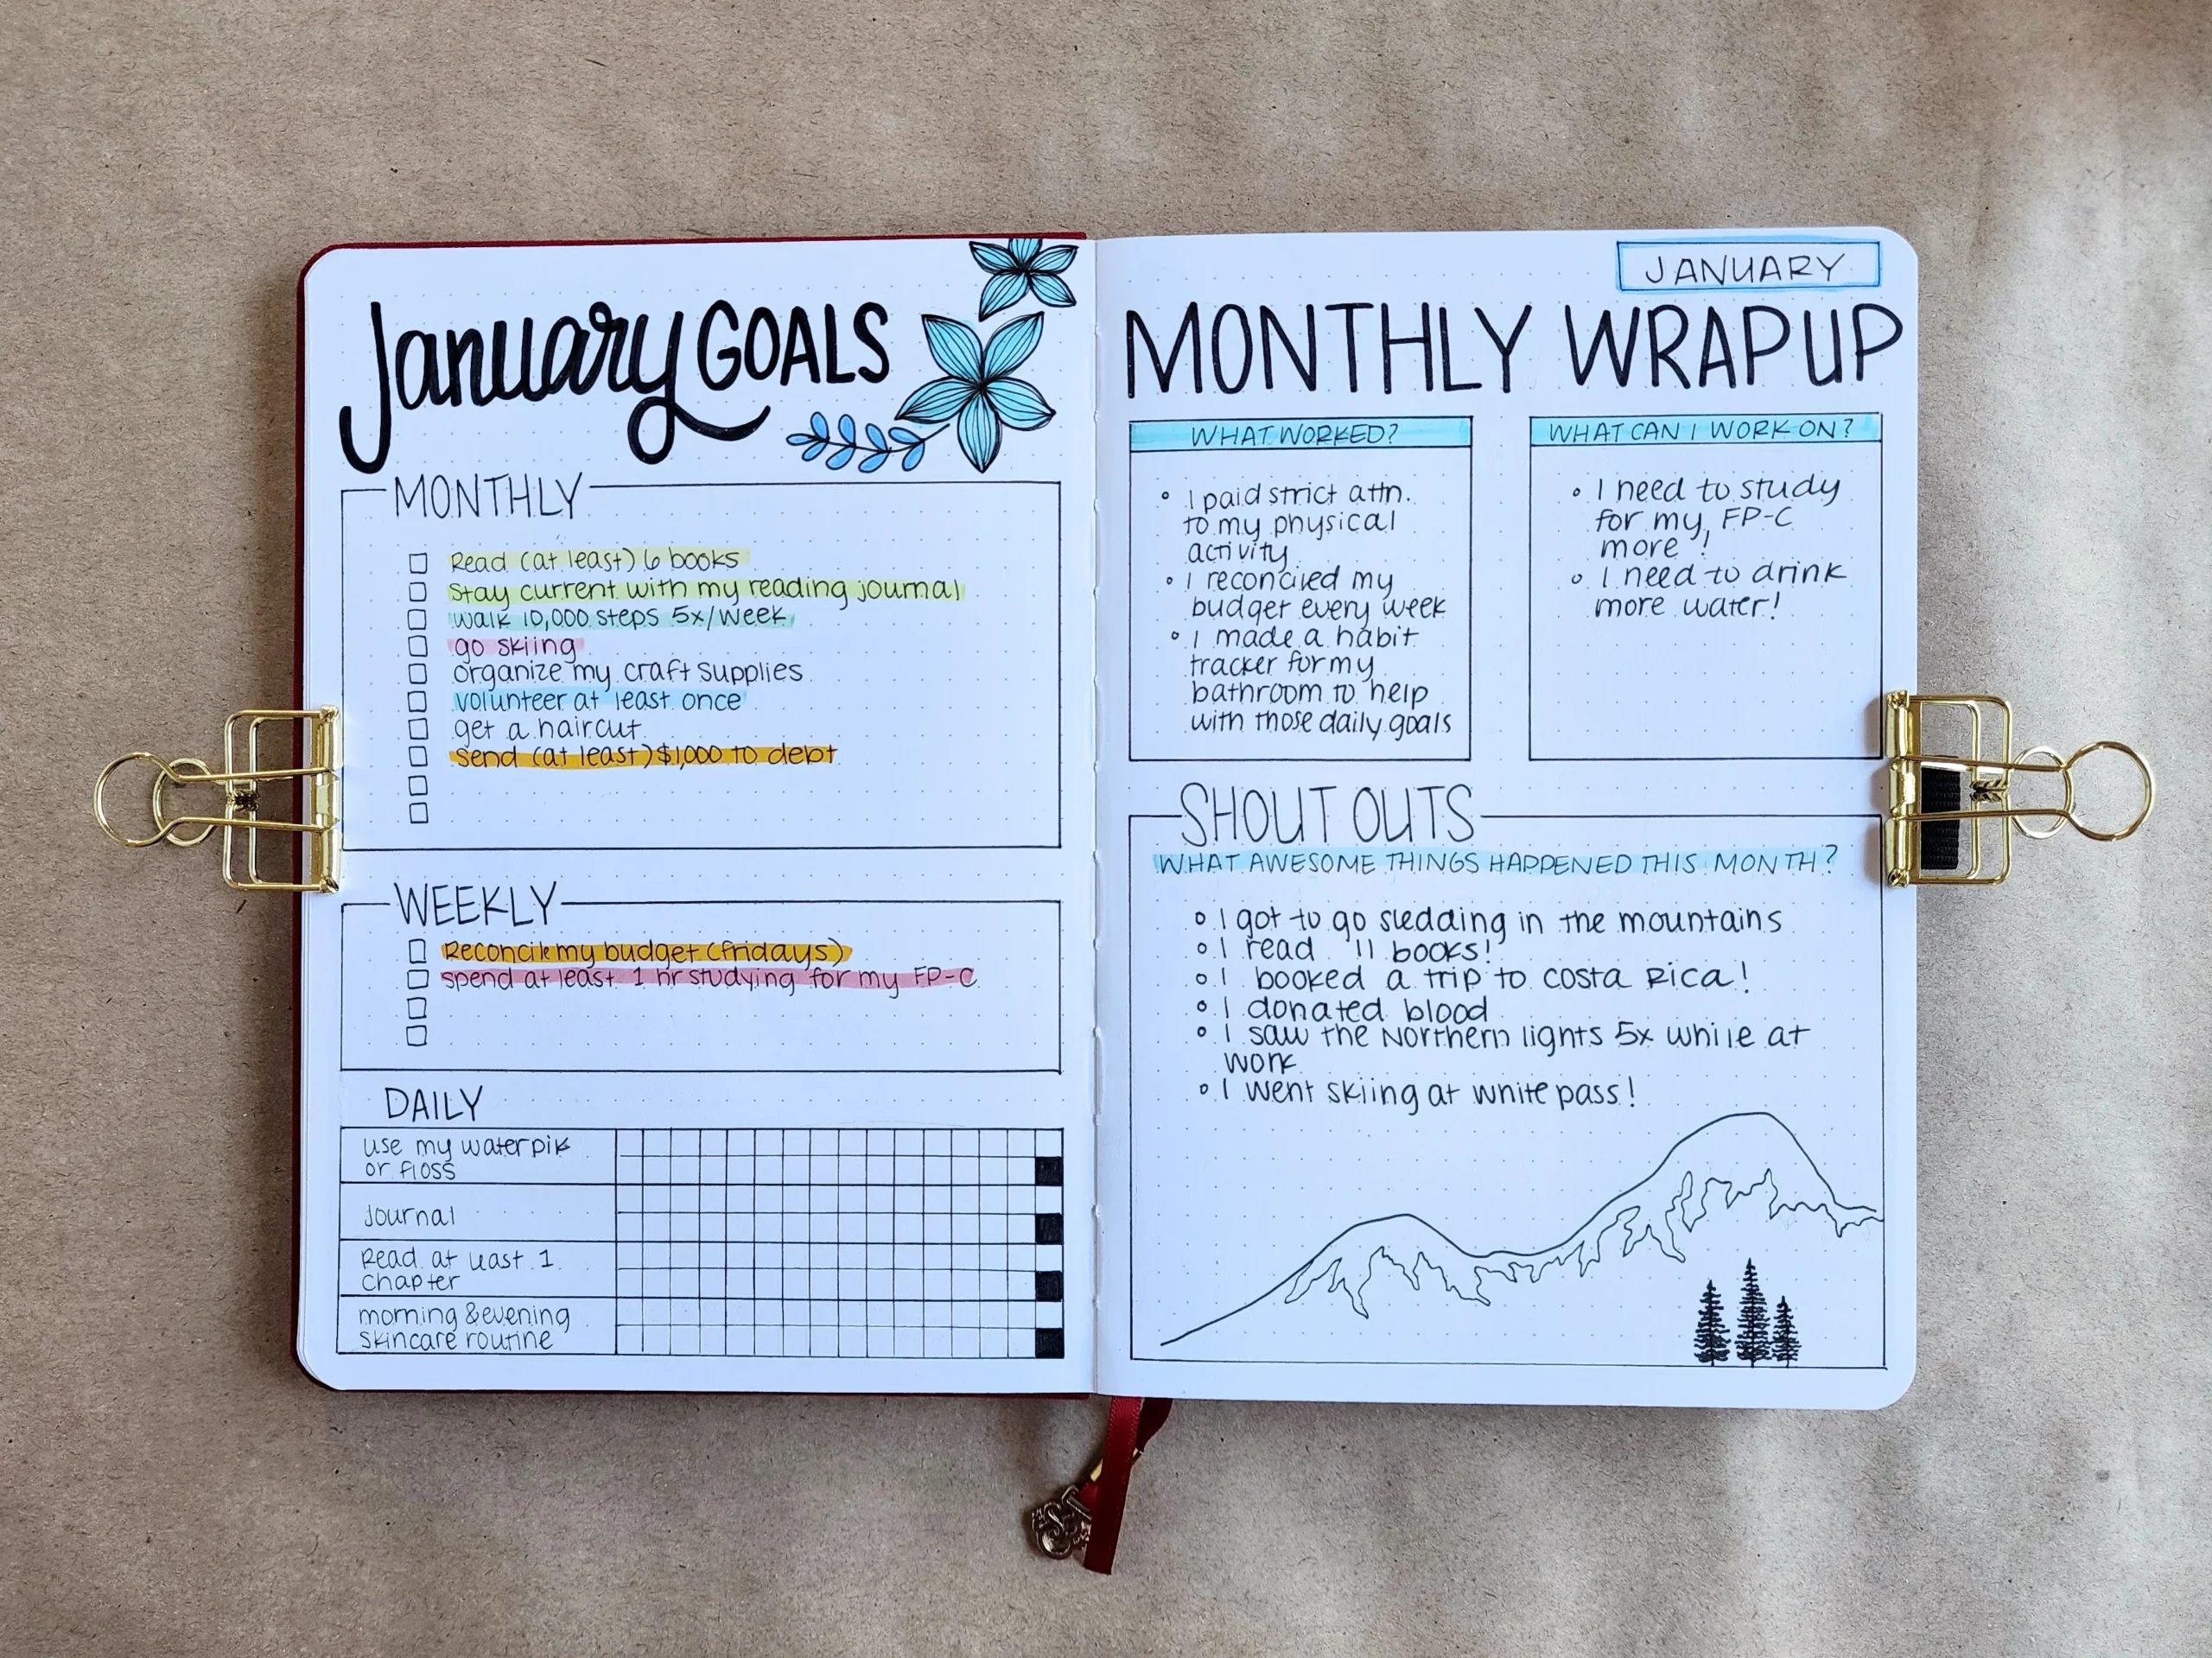 January GOALS
MONTHLY
Read (at least) 6 books
Stay current with my reading journal
walk 10,000 steps 5x/week
go skiing
organize my craft supplies
volunteer at least once
get a haircut
Send (at least) $1,000 to debt
WEEKLY
Reconcile my budget (fridays)
spend at least 1 hr studying for my FP-C
DAILY
use my waterpik
or floss
Journal
Read at least 1
chapter
morning & evening
skincare routine
JANUARY
MONTHLY WRAP UP
WHAT WORKED?
I paid strict attn.
to my physical
activity
I reconciled my
budget every week
I made a habit
tracker for my
bathroom to help
with those daily goals
WHAT CAN I WORK ON?
I need to study
for my FP-C
more!
I need to drink
more water!
SHOUT OUTS
WHAT AWESOME THINGS HAPPENED THIS MONTH?
I got to go sledding in the mountains
I read 11 books!
I booked a trip to Costa Rica!
I donated blood
I saw the Northern lights 5x while at
work
I went skiing at white pass!